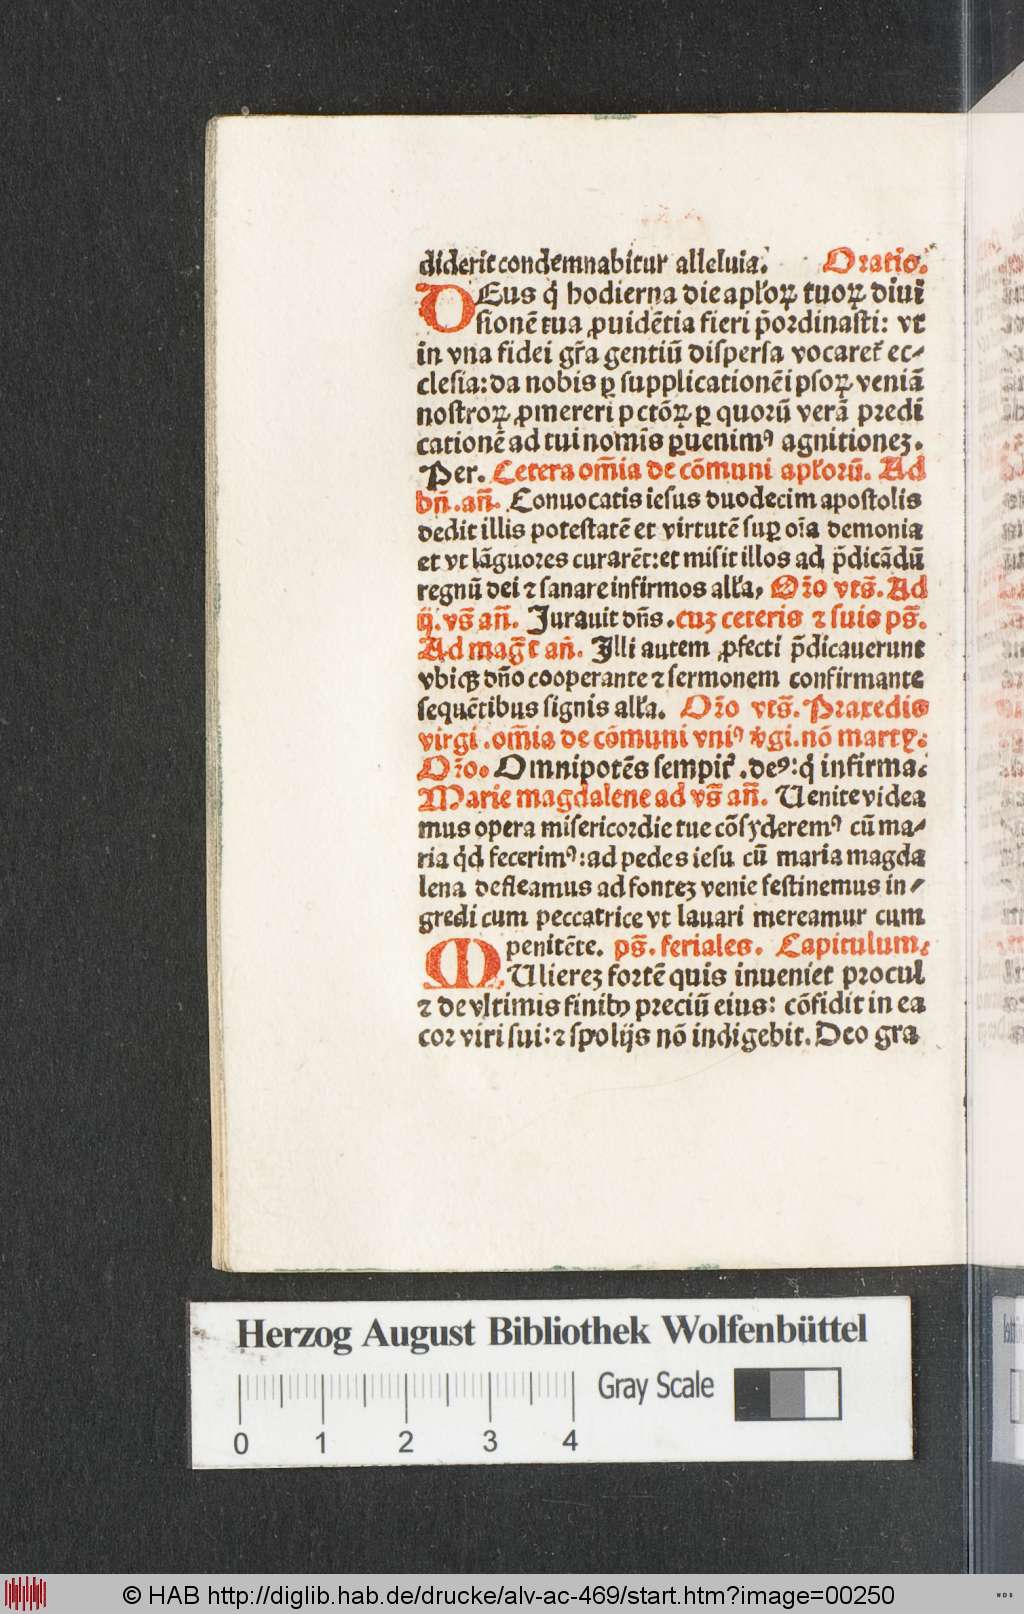 diderit condemnabitur alleluia. Oratio.
DEus q̇ hodierna die apl'oꝝ tuoꝝ diui
sionē tua ꝓuidētia fieri p̄ordinasti: vt
in vna fidei gr̄a gentiū dispersa vocaret᷑ ec⸗
clesia: da nobis ꝑ supplicationē ipsoꝝ veniā
nostroꝝ ꝓmereri pctōꝝ ꝑ quorū verā predi
cationē ad tui nomīs ꝑuenimꝰ agnitionez.
Per. Cetera om̄ia de cōmuni apl'orū. Ad
bn̄. an̄. Conuocatis iesus duodecim apostolis
dedit illis potestatē et virtutē suꝑ oīa demonia
et vt lāguores curarēt: et misit illos ad p̄dicādū
regnū dei ⁊ sanare infirmos all'a, Or̄o vts̄. Ad
ij. vs̄ an̄. Jurauit dn̄s. cuz ceteris ⁊ suis ps̄.
Ad maḡt an̄. Illi autem ꝓfecti p̄dicauerunt
vbiqꝫ dn̄o cooperante ⁊ sermonem confirmante
sequētibus signis all'a. Or̄o vts̄. Praxedis
virgi. om̄ia de cōmuni vniꝰ v̓gi. nō martꝝ.
Or̄o. Omnipotēs sempit᷑. deꝰ: q̇ infirma.
Marie magdalene ad vs̄ an̄. Uenite videa
mus opera misericordie tue cōsyderemꝰ cū ma⸗
ria q̇d fecerimꝰ: ad pedes iesu cū maria magda
lena defleamus ad fontez venie festinemus in⸗
gredi cum peccatrice vt lauari mereamur cum
penitēte. ps̄. feriales. Capitulum.
MUlierez fortē quis inueniet procul
⁊ de vltimis finibꝰ preciū eius: cōfidit in ea
cor viri sui: ⁊ spolijs nō indigebit. Deo gra
Herzog August Bibliothek Wolfenbüttel
Gray Scale
0 1 2 3 4
© HAB http://diglib.hab.de/drucke/alv-ac-469/start.htm?image=00250